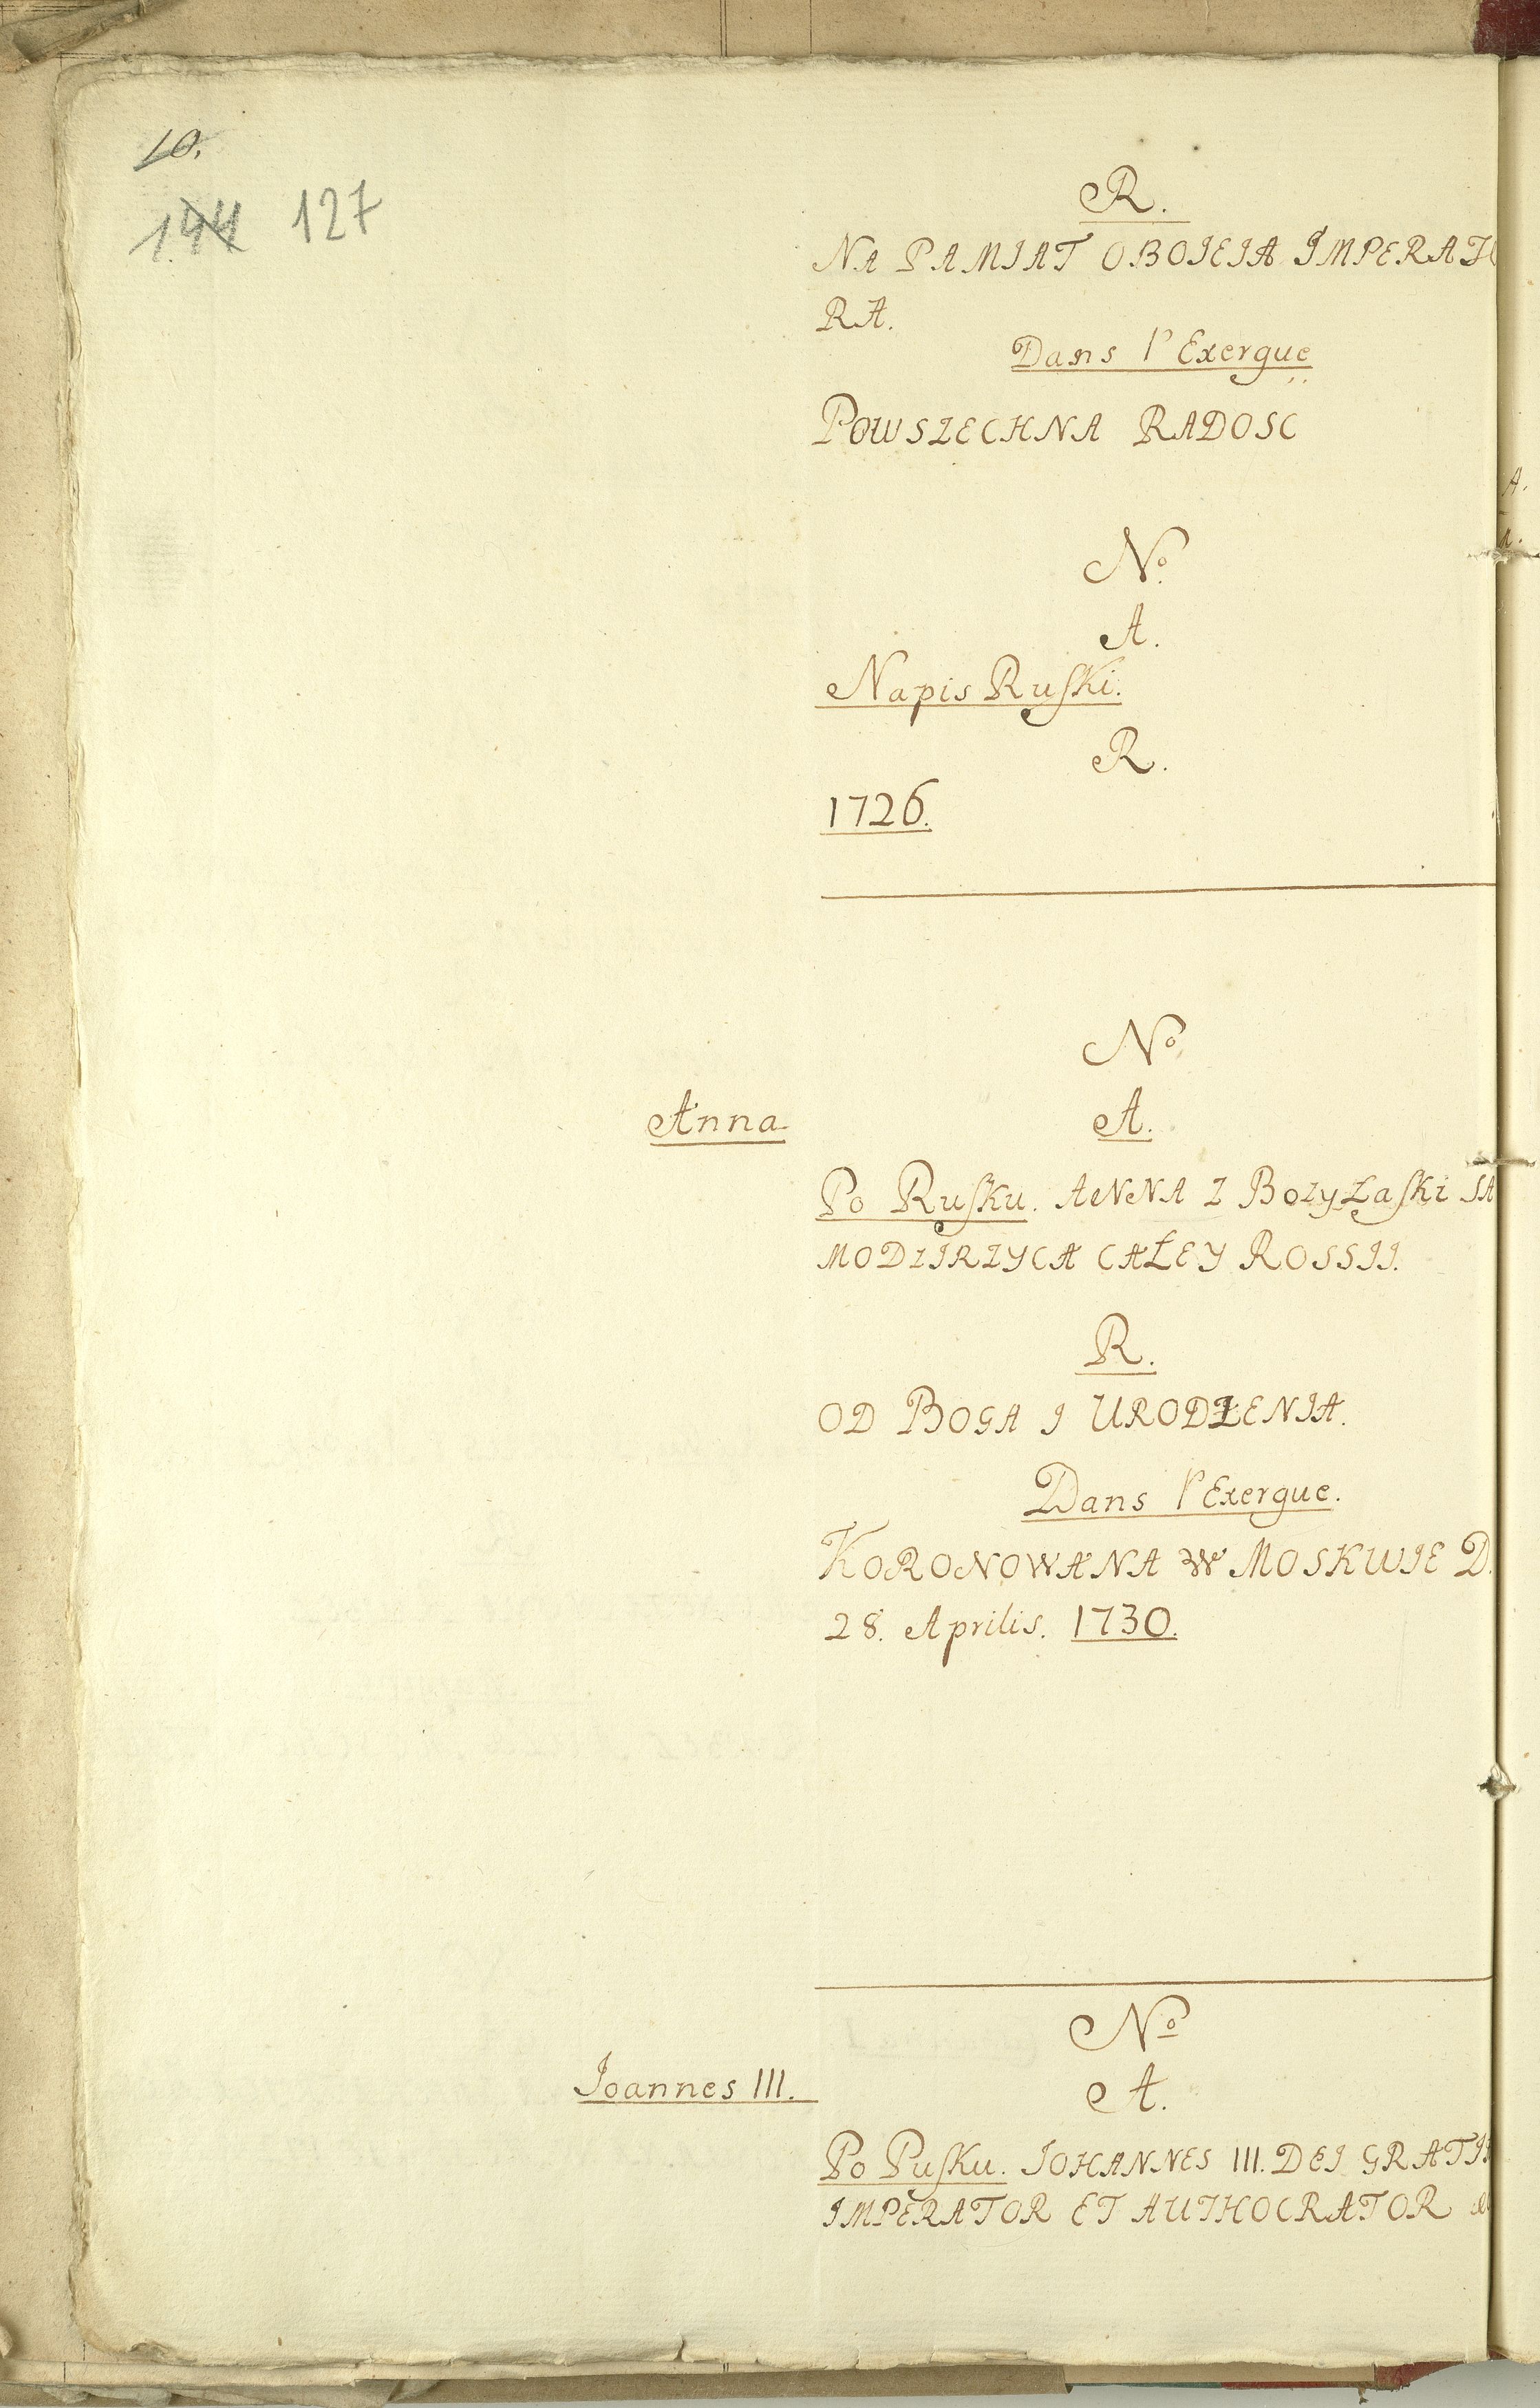 10.
144 127
R.
NA PAMIAT OBOIEIA IMPERATO
RA.
Dans l'Exergue
POWSZECHNA RADOSC
No
A.
Napis Ruſki.
R.
1726.
No
Anna A.
Po Ruſku. ANNA Z BozyŁaſki SA
MODZIRZYCA CAŁEY ROSSII.
R.
OD BOGA I URODZENIA.
Dans l'Exergue.
KORONOWANA W MOSKWIE D.
28. Aprilis. 1730.
No
Joannes III. A.
Po Puſku. IOHANNES III. DEI GRATIA
IMPERATOR ET AUTHOCRATOR